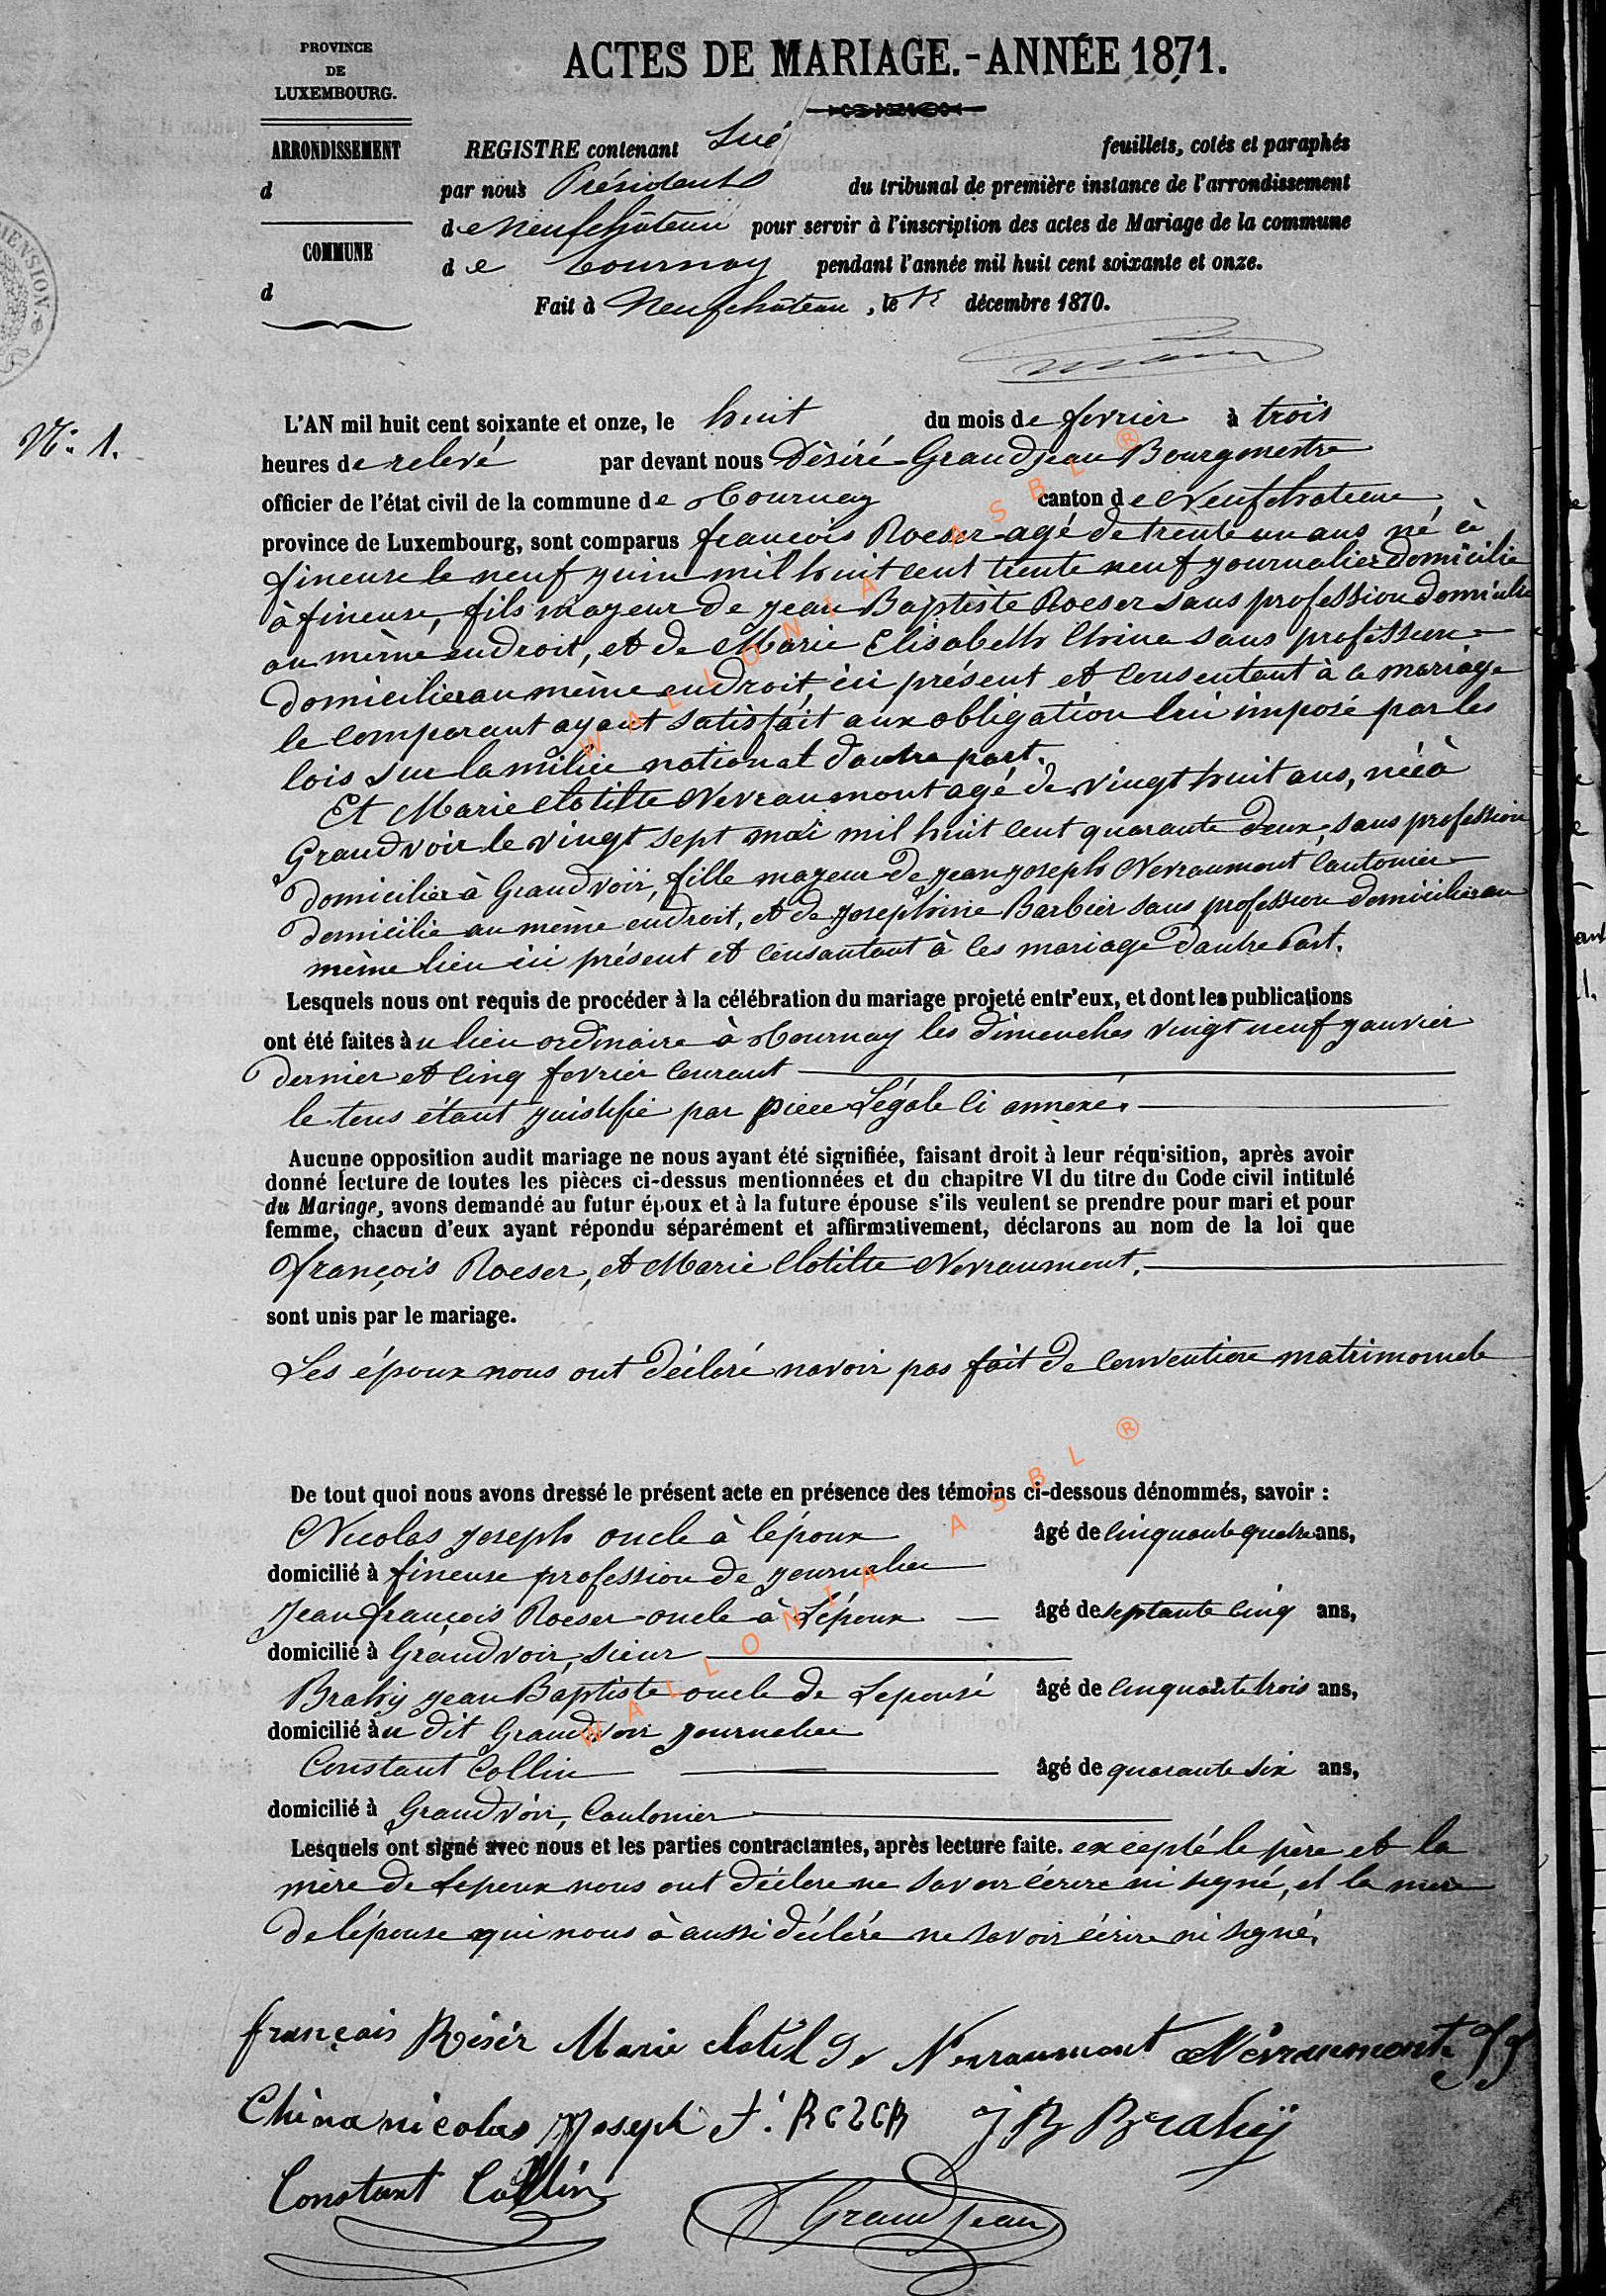 PROVINCE
DE
LUXEMBOURG.
ARRONDISSEMENT
d
COMMUNE
d
ACTES DE MARIAGE.-ANNÉE 1871.
REGISTRE contenant feuillets, cotés et paraphés
par nous Président du tribunal de première instance de l'arrondissement
de Neufchâteau pour servir à l'inscription des actes de Mariage de la commune
de Tournay pendant l'année mil huit cent soixante et onze.
Fait à Neufchâteau, le décembre 1870.
N: 1.
L'AN mil huit cent soixante et onze, le huit du mois de fevrier à trois
heures de relevé par devant nous Dèsiré Grandjean Bourgmestre
officier de l'état civil de la commune de Tournay canton de Neufchateau
province de Luxembourg, sont comparus francois Roeser agé de trente un ans né à
fineuse le neuf yuin mil huit cent trente neuf yournalier domicilie
à fineuse, fils mayeur de yean Baptiste Roeser sans profession domicilie
au mème endroit, et de Marie Elisabeth China sans profession
domicilier au mème endroit, ici présent et consentant à ce mariage
le comparant ayant satisfait aux obligation lui imposé par les
lois sur la milice national d'autre part.
Et Marie Clotilte Nevraumont agé de vingt huit ans, née à
Grandvoir le vingt sept mai mil huit cent quarante deux, sans profession
domicilier à Grandvoir, fille mayeur de yean yoseph Nevraumont Cantonier
domicilie au mème endroit, et de yosephine Barbier sans profession domicilier au
mème lieu ici présent et consantant à ces mariage d'autre Part.
Lesquels nous ont requis de procéder à la célébration du mariage projeté entr'eux, et dont les publications
ont été faites àu lieu ordinaire à Tournay les dimenches vingt neuf yanvier
dernier et cinq fevrier courant
le tous étant yuistifié par piece Légale ci annexé.
Aucune opposition audit mariage ne nous ayant été signifiée, faisant droit à leur réquisition, après avoir
donné lecture de toutes les pièces ci-dessus mentionnées et du chapitre VI du titre du Code civil intitulé
du Mariage, avons demandé au futur époux et à la future épouse s'ils veulent se prendre pour mari et pour
femme, chacun d'eux ayant répondu séparément et affirmativement, déclarons au nom de la loi que
françois Roeser, et Marie Clotilte Nevraumont.
sont unis par le mariage.
Les époux nous ont déclaré navoir pas fait de convention matrimoniale
De tout quoi nous avons dressé le présent acte en présence des témoins ci-dessous dénommés, savoir :
Nicolas yoseph oncle à lépoux âgé de cinquante quatre ans,
domicilié à fineuse profession de yournalier
Jean françois Roeser oncle à Lépoux âgé de septante cinq ans,
domicilié à Grandvoir, sieur
Brahy yean Baptiste oncle de Lepousé âgé de cinquante trois ans,
domicilié àu dit Grandvoir yournalier
Constant Collin âgé de quarante six ans,
domicilié à Grandvoir, Cantonier
Lesquels ont signé avec nous et les parties contractantes, après lecture faite. excepté le père et la
mère de Lepoux nous ont déclare ne savoir écrire ni signé, et la mère
de lépouse qui nous à aussi déclaré ne savoir écrire ni signé.
françois Résér Marie clotilde Nevraumont Névraumont JJ
China nicolas Joseph f. REZER J B Brahÿ
Constant Collin Grandjean
WALLONIA ASBL ®
WALLONIA ASBL ®